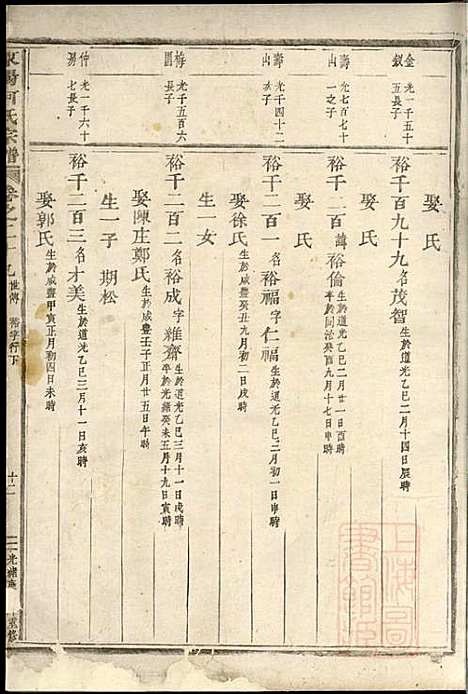 金釵 光一千五十五長子
娶氏
裕千百九十九名茂智 生於道光乙巳二月十四日辰時
娶氏
壽山 光七百七十一之子
裕千二百諱裕倫 生於道光乙巳二月廿一日酉時 卒於同治癸酉九月十七日申時
娶氏
壽山 光千四十二長子
裕千二百一名裕福字仁福 生於道光乙巳二月初一日申時
娶徐氏 生於咸豐癸丑九月初二日戌時
生一女
梅園 光千五百六長子
裕千二百二名裕成字雅齋 生於道光乙巳三月十一日戌時 卒於光緒癸未五月十九日寅時
娶陳庄鄭氏 生於咸豐壬子正月廿五日午時
生一子 期松
仲 光一千六十七長子
裕千二百三名才美 生於道光乙巳三月十一日亥時
娶郭氏 生於咸豐甲寅正月初四日未時
何氏宗譜 卷之二 世傳 裕字行下
十二
光緒 重修
上海圖書館藏